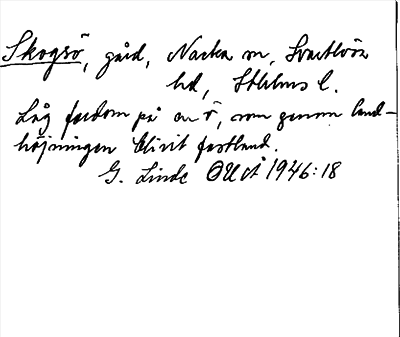 Skogsö, gård, Nacka sn, Svartlösa
hd, Sthlms l.
Låg fordom på en ö, som genom land-
höjningen blivit fastland.
G. Linde OUÅ 1946:18